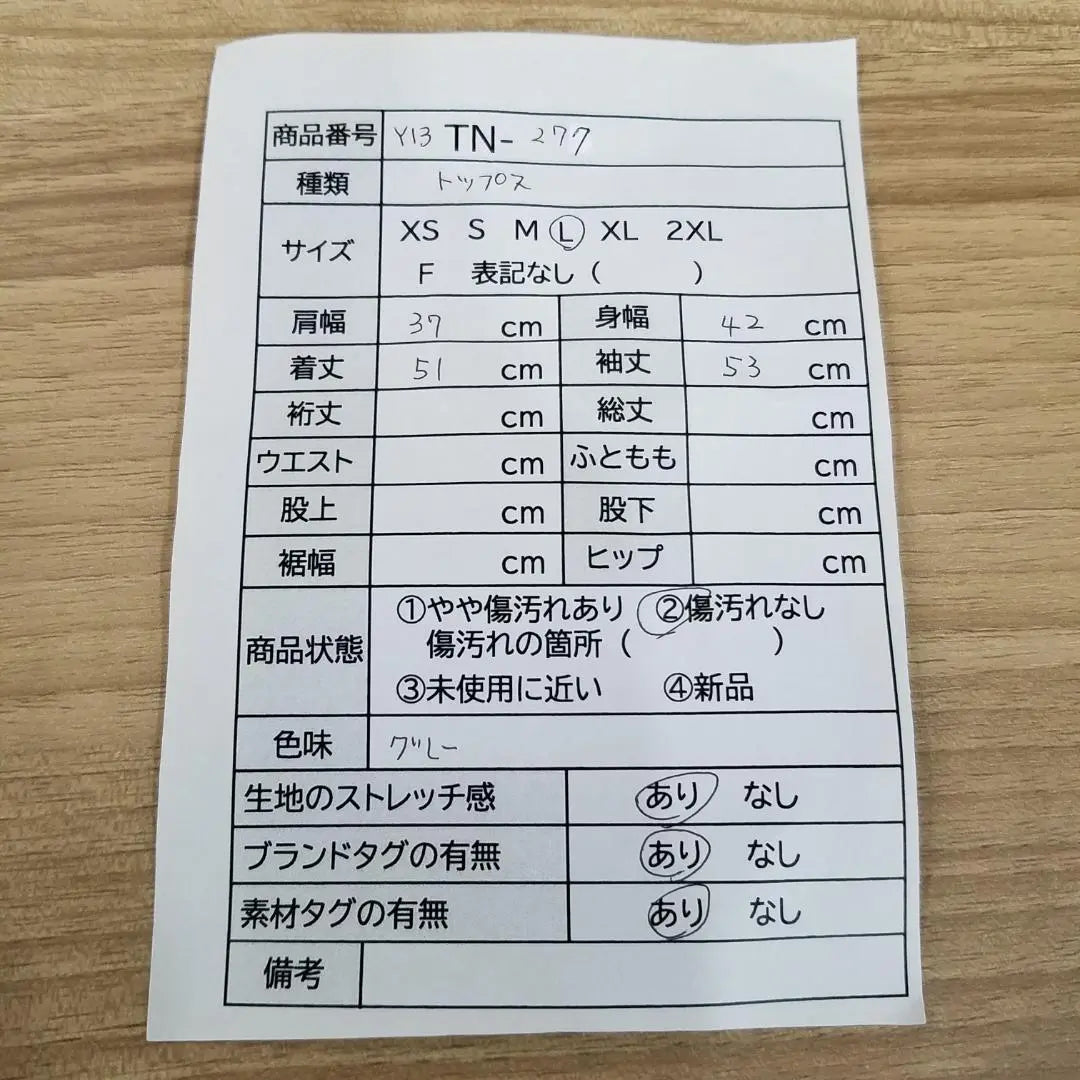 商品番号 Y13 TN- 277
種類 トップス
サイズ XS S M L XL 2XL
F 表記なし ( )
肩幅 37 cm 身幅 42 cm
着丈 51 cm 袖丈 53 cm
裄丈 cm 総丈 cm
ウエスト cm ふともも cm
股上 cm 股下 cm
裾幅 cm ヒップ cm
商品状態 ①やや傷汚れあり ②傷汚れなし
傷汚れの箇所 ( )
③未使用に近い ④新品
色味 グレー
生地のストレッチ感 あり なし
ブランドタグの有無 あり なし
素材タグの有無 あり なし
備考